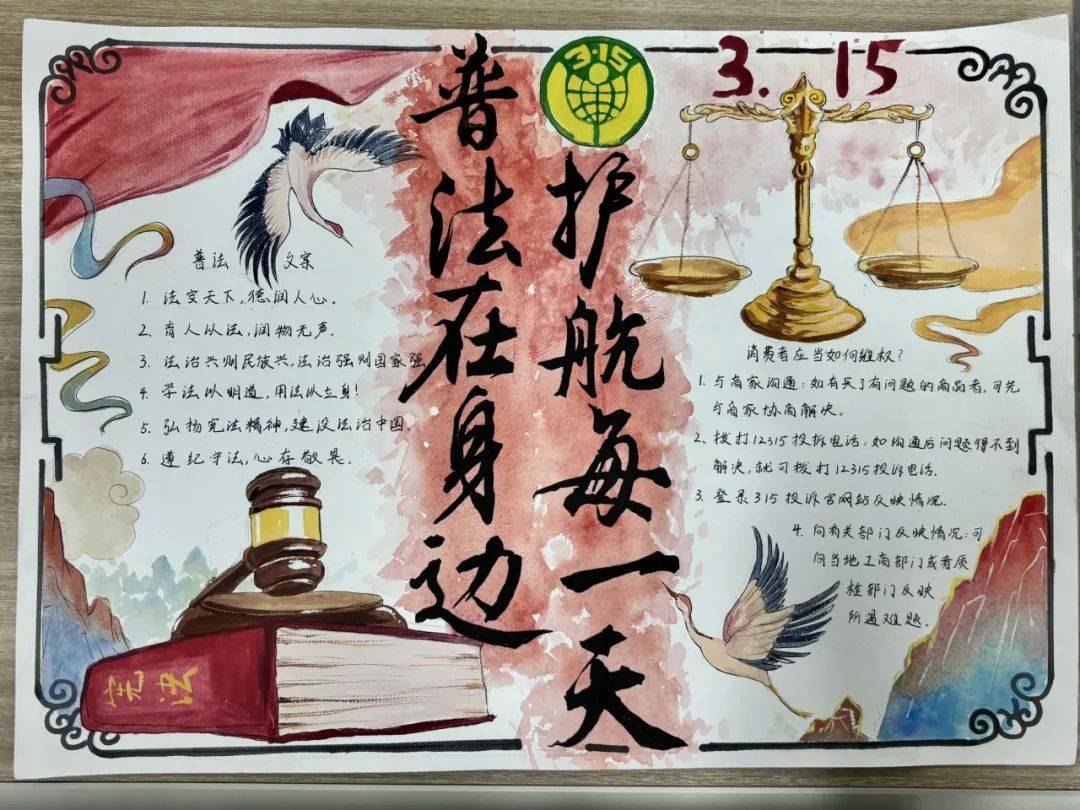 普法在身边
3·15
护航每一天
3.15
普法 文案
1. 法安天下,德润人心。
2. 育人以法,润物无声。
3. 法治兴则民族兴,法治强则国家强
4. 学法以明道,用法以立身!
5. 弘扬宪法精神,建设法治中国。
6. 遵纪守法,心存敬畏。
宪法
消费者应当如何维权?
1. 与商家沟通:如有买了有问题的商品者,可先
与商家协商解决。
2. 拨打12315投诉电话:如沟通后问题得不到
解决,就可拨打12315投诉电话。
3. 登录315投诉官网站反映情况。
4. 向有关部门反映情况:可
向当地工商部门或者质
桂部门反映
所遇难题。